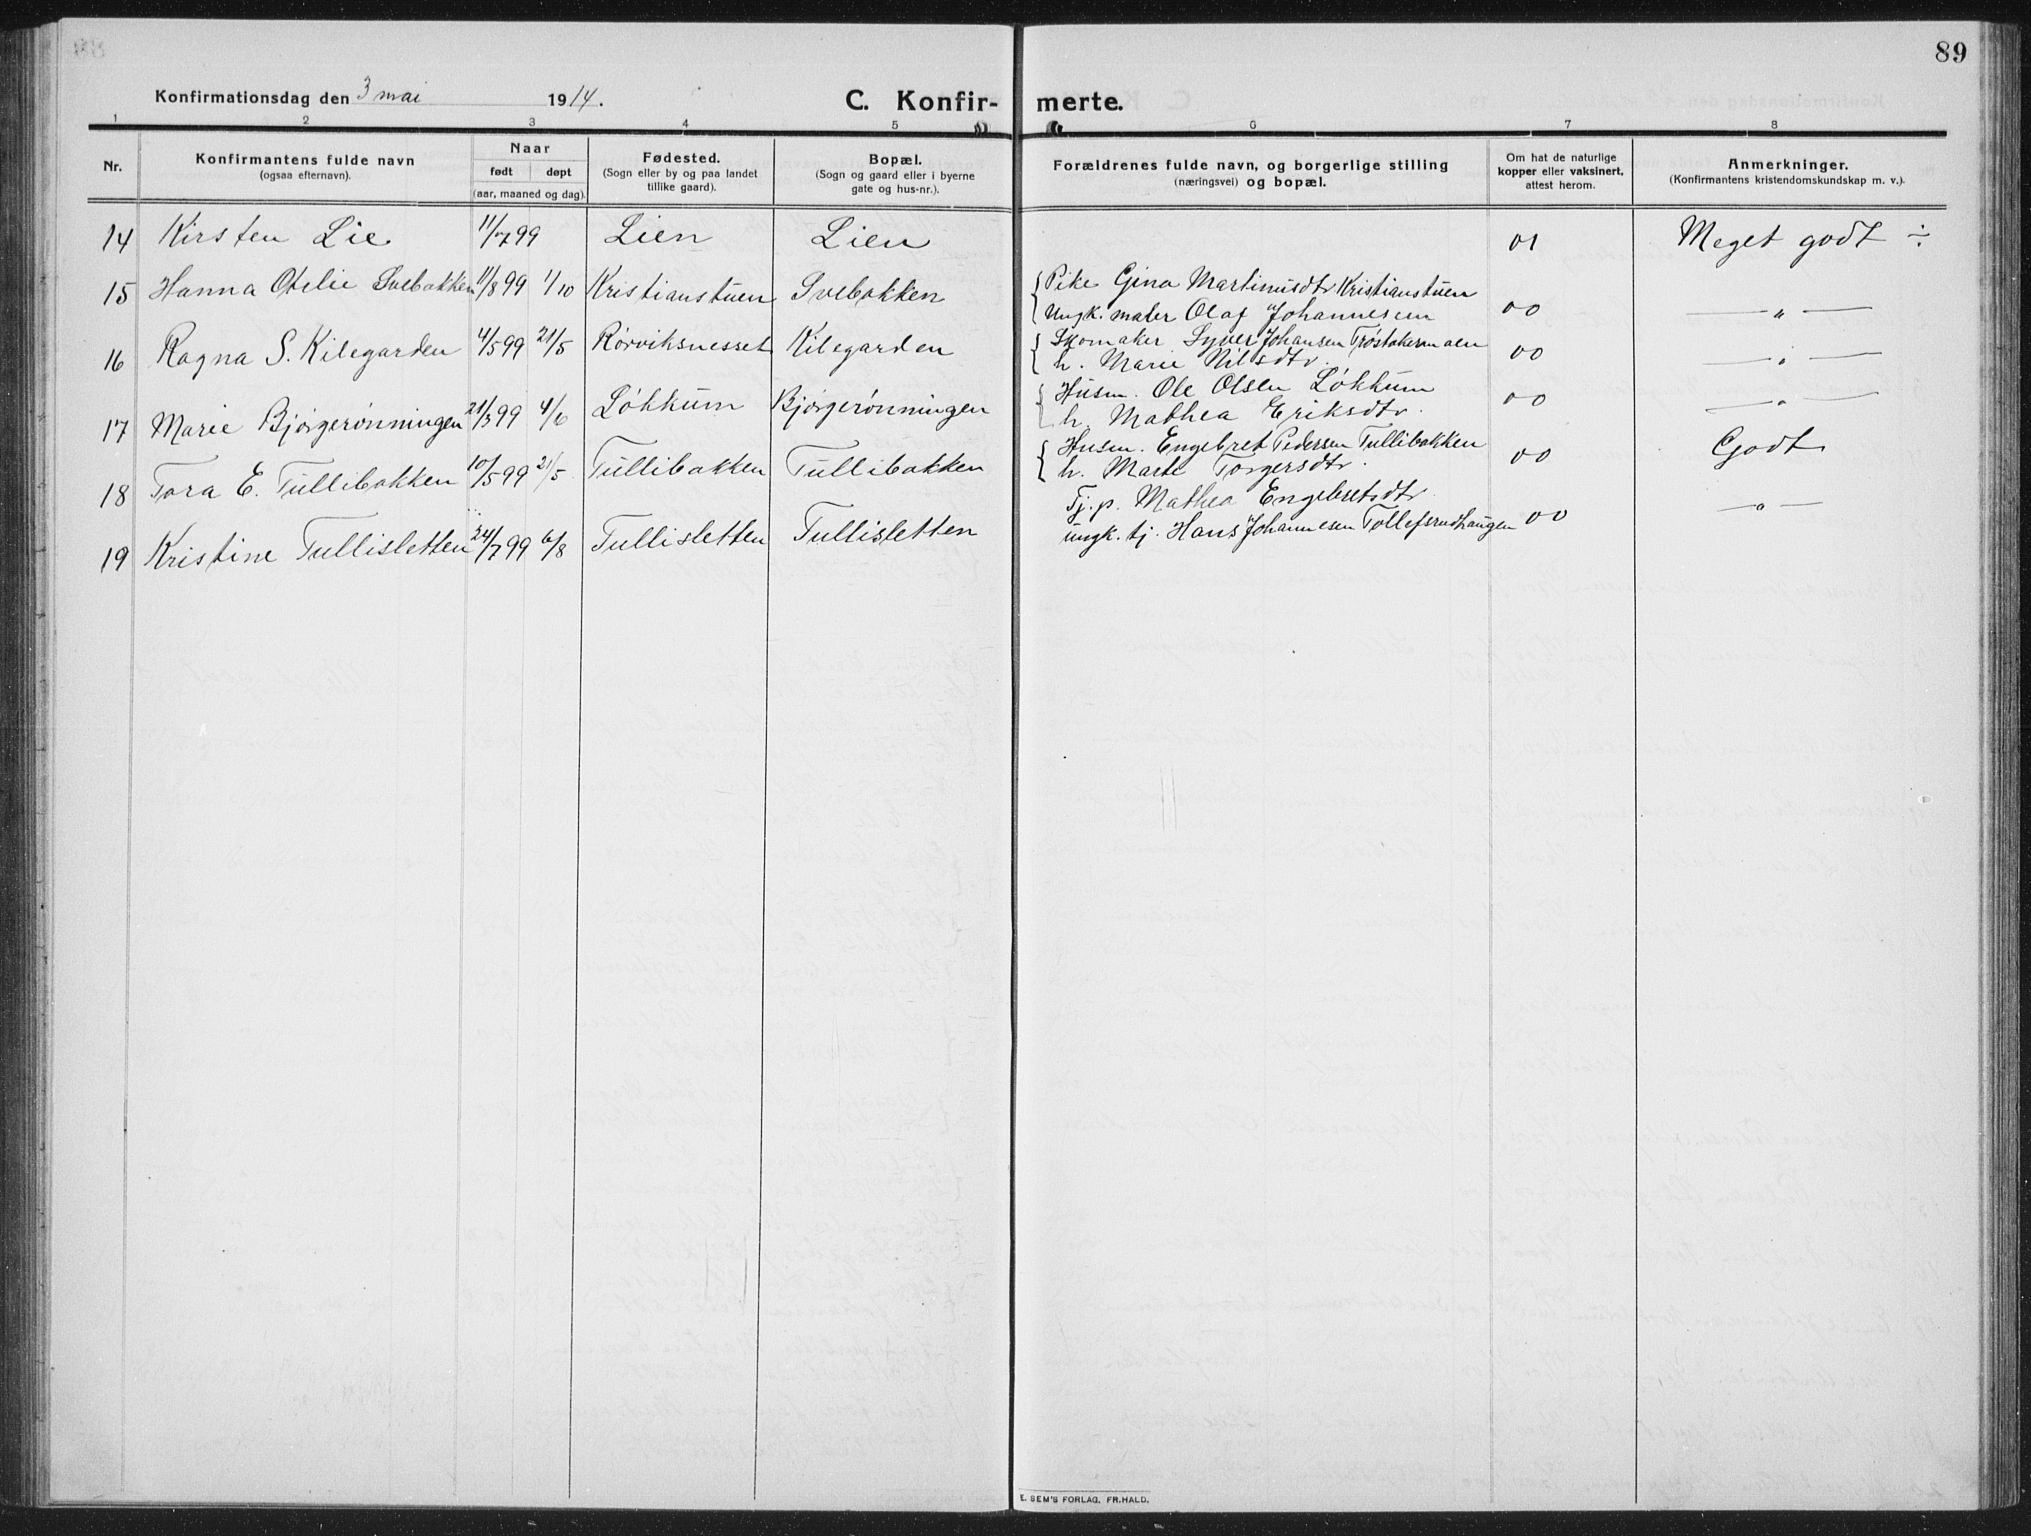 89
Konfirmationsdag den 3 mai 1914. C. Konfir- merte.
1 2 3 4 5 6 7 8
Nr. Konfirmantens fulde navn (ogsaa efternavn). Naar født døpt (aar, maaned og dag). Fødested. (Sogn eller by og paa landet tillike gaard). Bopæl. (Sogn og gaard eller i byerne gate og hus-nr.). Forældrenes fulde navn, og borgerlige stilling (næringsvei) og bopæl. Om hat de naturlige kopper eller vaksinert, attest herom. Anmerkninger. (Konfirmantens kristendomskundskap m. v.).
14 Kirsten Lie 11/7 99 Lien Lien 01 Meget godt ÷
15 Hanna Otelie Svebakken 11/8 99 1/10 Kristianstuen Svebakken { Pike Gina Martinusdtr Kristianstuen
Ungk. maler Olaf Johannesen 00 — „ —
16 Ragna S. Kilegarden 4/5 99 21/5 Rørviksnesset Kilegarden { Skomaker Syver Johansen
h. Marie Nilsdtr. 00 — „ —
17 Marie Bjørgerønningen 21/3 99 4/6 Løkkum Bjørgerønningen { Husm. Ole Olsen Løkkum
h. Mathea Eriksdtr. 00 — „ —
18 Tora E. Tullibakken 10/5 99 21/5 Tullibakken Tullibakken { Husm. Engebret Pedersen Tullibakken
h. Marte Torgersdtr. 00 Godt
19 Kristine Tullisletten 24/7 99 6/8 Tullisletten Tullisletten Tj. p. Mathea Engebretsdtr.
ungk. tj. Hans Johannesen Tollefsrudhaugen 00 — „ —
E. SEM'S FORLAG, FR.HALD.